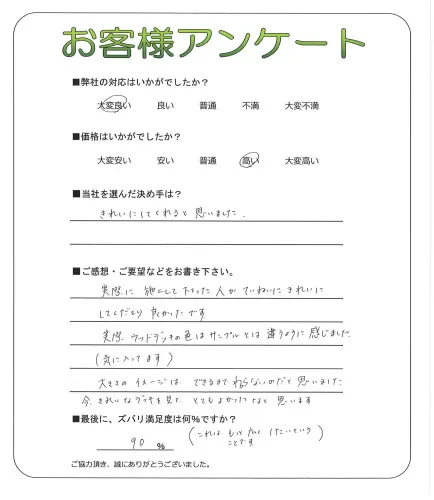 お客様アンケート
■弊社の対応はいかがでしたか？
大変良い 良い 普通 不満 大変不満
■価格はいかがでしたか？
大変安い 安い 普通 高い 大変高い
■当社を選んだ決め手は？
きれいにしてくれると思いました.
■ご感想・ご要望などをお書き下さい。
実際に施工して下さった人がていねいにきれいに
してくださり良かったです
実際、ウッドデッキの色はサンプルとは違うように感じました
(気に入ってます)
大きさのイメージは、できるまでわからないのだと思いました
今、きれいなデッキを見て、とてもよかったなと思います
■最後に、ズバリ満足度は何％ですか？
90 %
(これはもっと広くしたいという
ことです)
ご協力頂き、誠にありがとうございました。